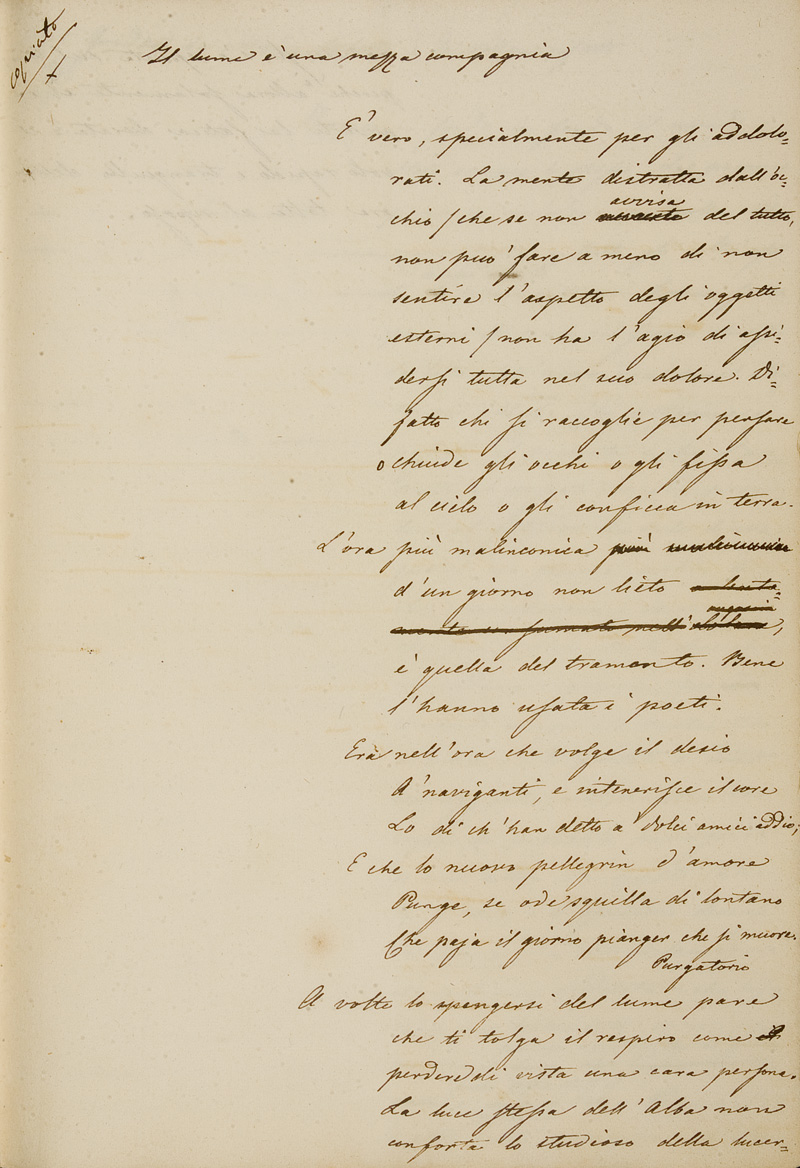 copiato
Il lume è una mezza compagnia
E' vero, specialmente per gli addolo=
rati. La mente distratta dall'oc=
avvisa
chio / che se non del tutto,
non può fare a meno di non
sentire l'aspetto degli oggetti
esterni / non ha l'agio di assi=
dersi tutta nel suo dolore. Di=
fatto chi si raccoglie per pensare
o chiude gli occhi o gli fissa
al cielo o gli conficca in terra.
L'ora più malinconica più malinconica
d'un giorno non lieto a lenta=
mente un fumati nell'
è quella del tramonto. Bene
l'hanno usata i poeti.
Era nell'ora che volge il desio
A' naviganti, e intenerisce il core
Lo di ch'han detto a' dolci amici addio;
E che lo nuovo pellegrin d'amore
Punge, se ode squilla di lontano
Che paja il giorno pianger che si muore.
Purgatorio
A volte lo spengersi del lume pare
che ti tolga il respiro come
perdere di vista una cara persona.
La luce stessa dell'Alba non
conforta lo studioso della lucer=